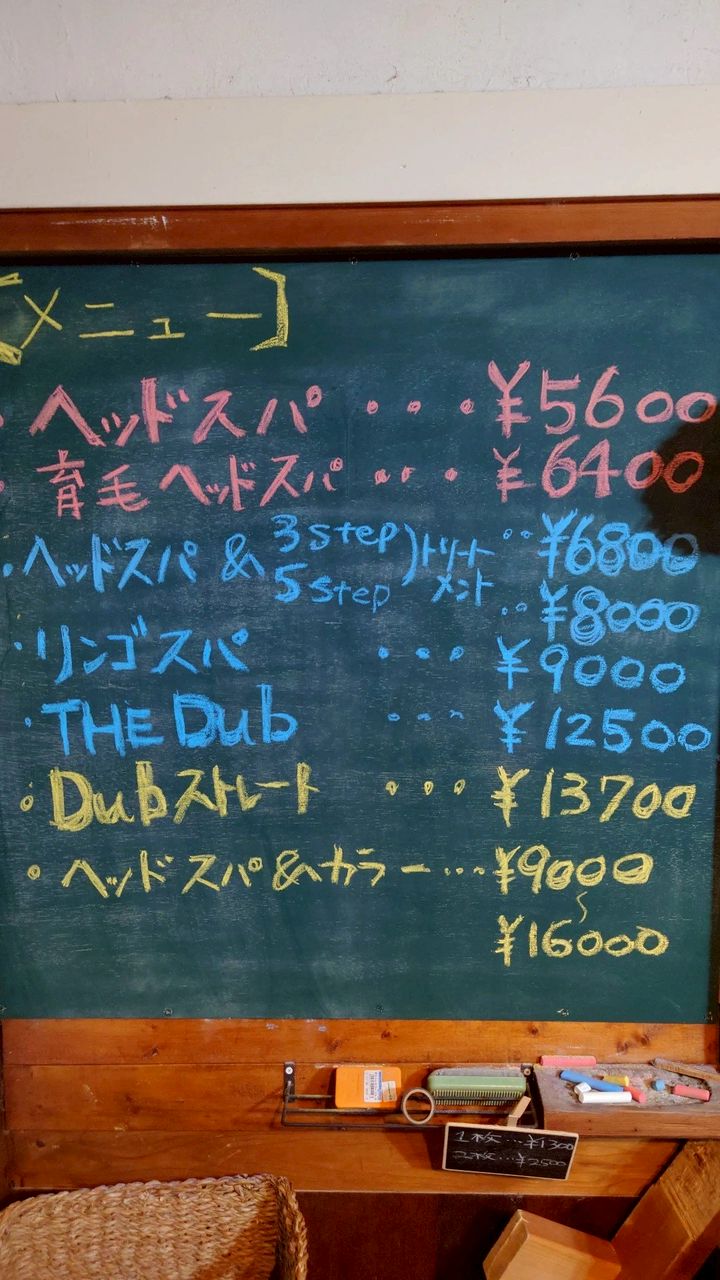 【メニュー】
・ヘッドスパ・・・¥5600
・育毛ヘッドスパ・・・¥6400
・ヘッドスパ & 3step 5step)トリートメント ・・¥6800
・・¥8000
・リンゴスパ ・・・¥9000
・THE Dub ・・・¥12500
・Dubストレート ・・・¥13700
・ヘッドスパ&カラー・・・¥9000
〜
¥16000
1枚・・・¥1300
2枚・・・¥2500